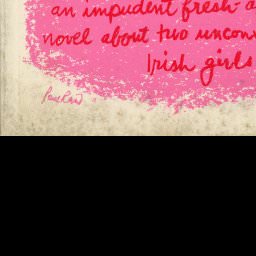 an impudent fresh-a
novel about two uncon
Irish girls